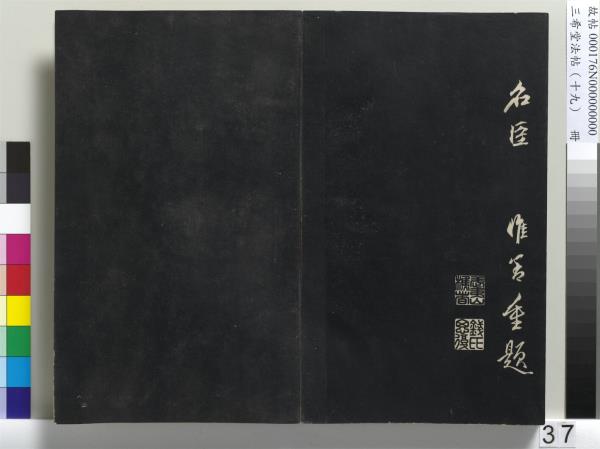 故帖 000176N000000000
三希堂法帖（十九） 冊
名臣 惟善重題
錢氏
37